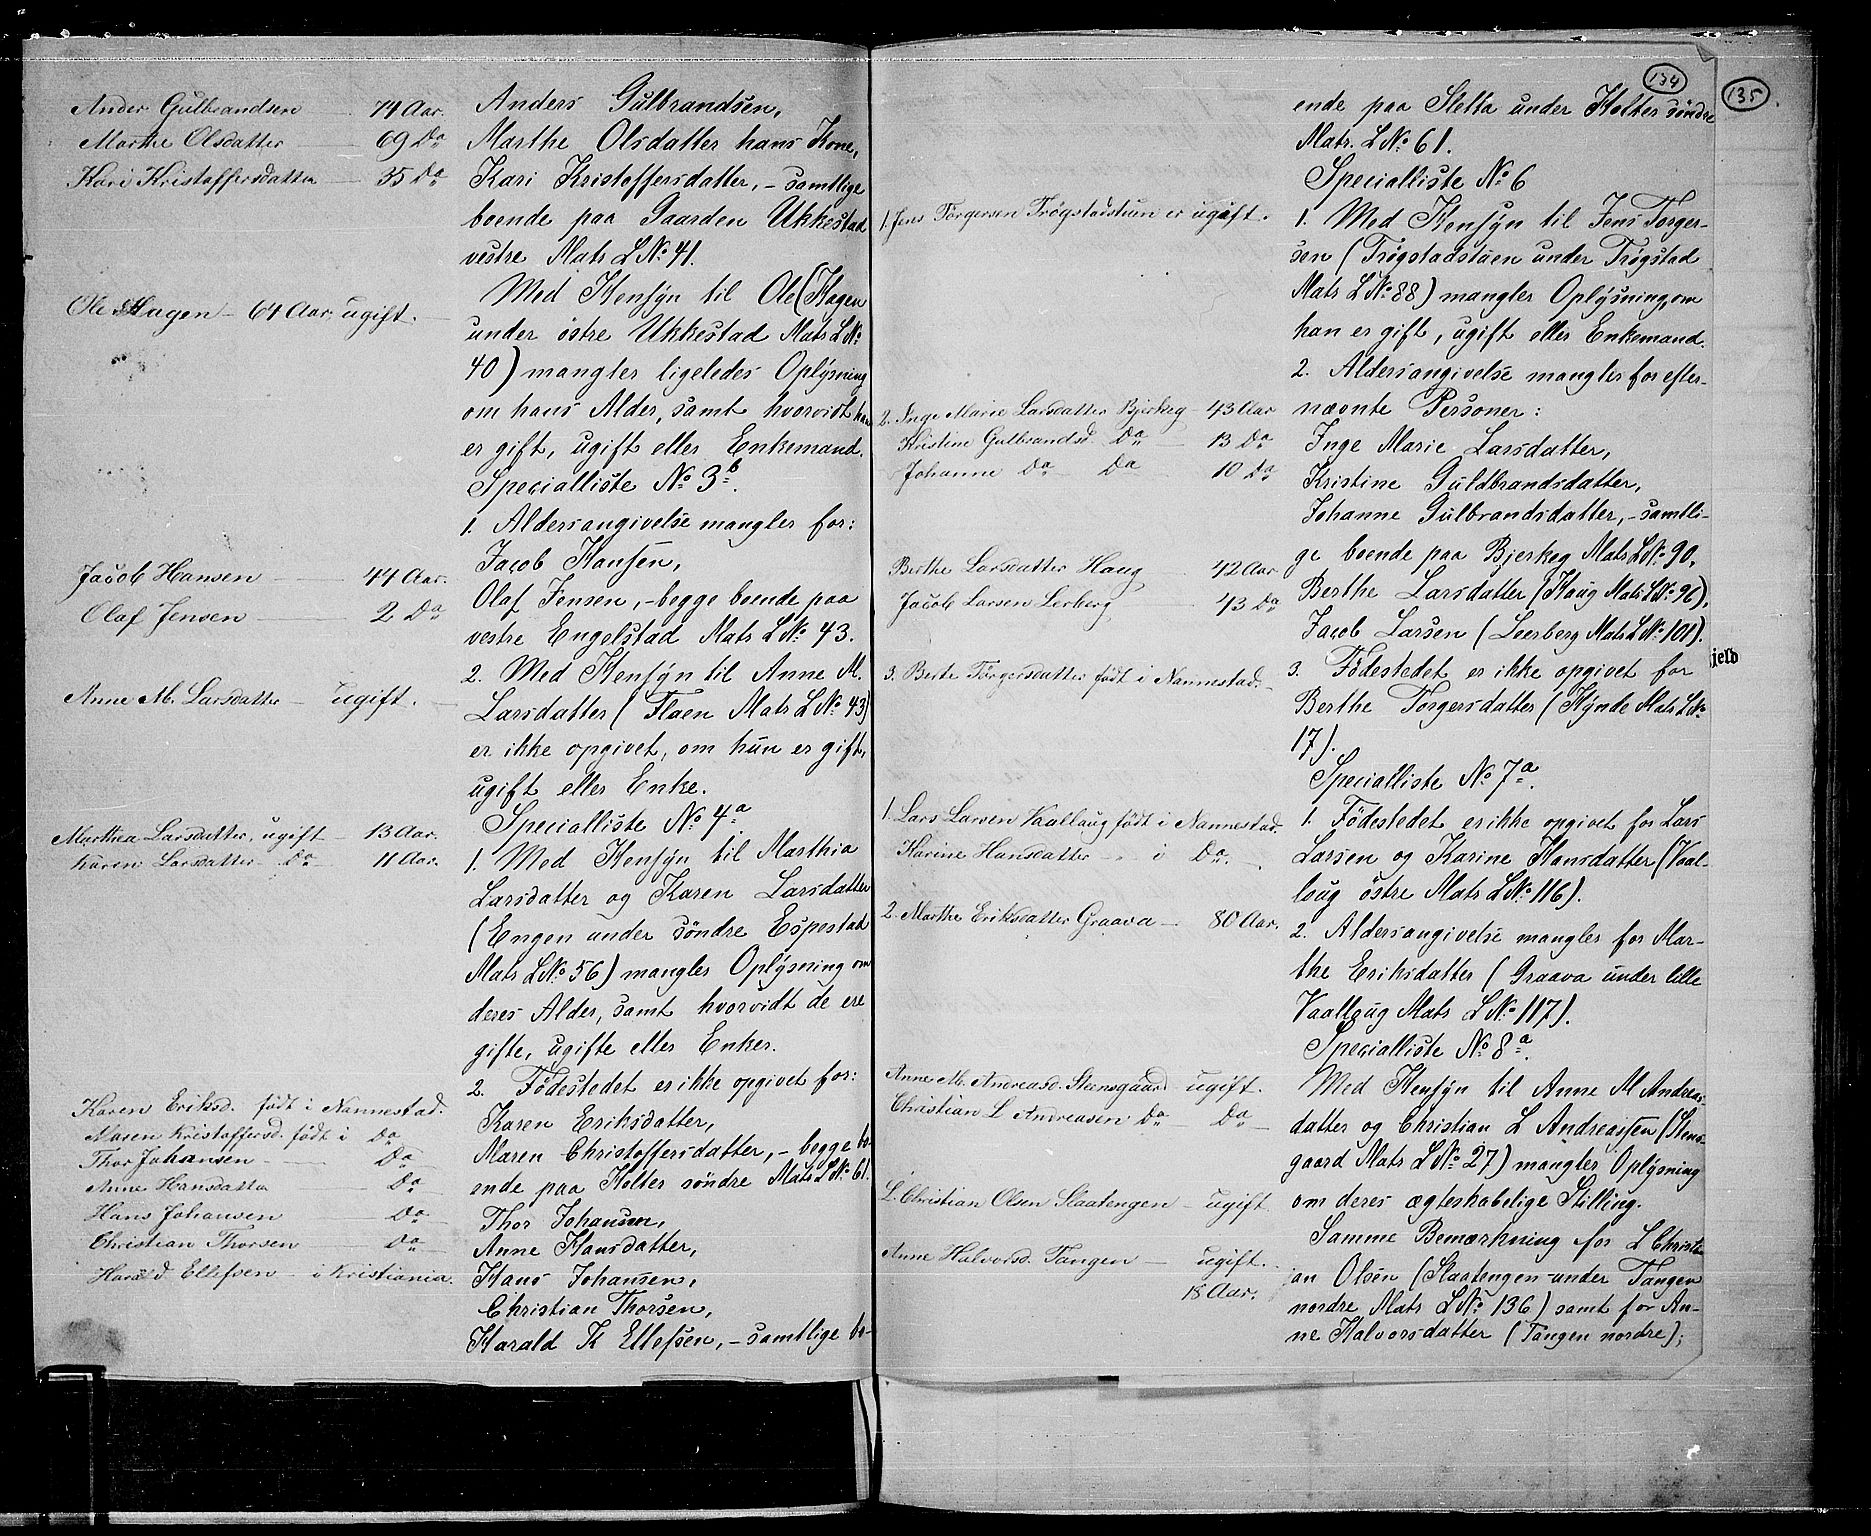 Ander Gulbrandsen — 74 Aar.
Marthe Olsdatter — 69 Do
Kari Kristoffersdatter — 35 Do
Ole Hagen — 64 Aar, ugift.
Jacob Hansen — 44 Aar.
Olaf Jensen — 2 Do
Anne M. Larsdatter — ugift.
Marthea Larsdatter, ugift — 13 Aar.
Karen Larsdatter Do 11 Aar.
Karen Eriksd. født i Nannestad.
Maren Kristoffersd. født i Do
Thor Johansen — Do
Anne Hansdatter Do
Hans Johansen — Do
Christian Thorsen — Do
Harald Ellefsen — i Kristiania.
Anders Gulbrandsen,
Marthe Olsdatter hans Kone,
Kari Kristoffersdatter, – samtlige
boende paa Gaarden Ukkestad
vestre Mats LNo 41.
Med Hensyn til Ole (Hagen
under østre Ukkestad Mats LNo
40) mangler ligeledes Oplysning
om hans Alder, samt hvorvidt han
er gift, ugift eller Enkemand.
Specialliste No 3b.
1. Aldersangivelse mangler for:
Jacob Hansen,
Olaf Jensen, – begge boende paa
vestre Engelstad Mats LNo 43.
2. Med Hensyn til Anne M.
Larsdatter (Flaen Mats LNo 43)
er ikke opgivet, om hun er gift,
ugift eller Enke.
Specialliste No 4a
1. Med Hensyn til Marthia
Larsdatter og Karen Larsdatter
(Engen under søndre Espestad
Mats LNo 56) mangler Oplysning om
deres Alder, samt hvorvidt de ere
gifte, ugifte eller Enker.
2. Fødestedet er ikke opgivet for:
Karen Eriksdatter,
Maren Christoffersdatter, – begge bo-
ende paa Holter søndre Mats LNo 61.
Thor Johansen,
Anne Hansdatter,
Hans Johansen,
Christian Thorsen,
Harald K Ellefsen, – samtlige bo-
134
135
1. Jens Torgersen Trøgstadstuen er ugift.
2. Inge Marie Larsdatter Bjerkeg — 43 Aar
Kristine Gulbrandsd. Do — 13 Do
Johanne Do Do 10 Do
Berthe Larsdatter Haug — 42 Aar
Jacob Larsen Lerberg — 43 Do
3. Berte Torgersdatter født i Nannestad.
1. Lars Larsen Vaallaug født i Nannestad.
Karine Hansdatter — i Do.
2. Marthe Eriksdatter Graava — 80 Aar.
Anne M. Andreasd. Stensgaard — ugift.
Christian L Andreasen Do — Do
L. Christian Olsen Slaatengen — ugift
Anne Halvorsd. Tangen — ugift.
18 Aar.
ende paa Sletta under Holter søndre
Mats. LNo 61.
Specialliste No 6
1. Med Hensyn til Jens Torger-
sen (Trøgstadstuen under Trøgstad
Mats LNo 88) mangler Oplysning, om
han er gift, ugift eller Enkemand.
2. Aldersangivelse mangler for efter-
nævnte Personer:
Inge Marie Larsdatter,
Kristine Guldbrandsdatter,
Johanne Gulbrandsdatter, – samtli-
ge boende paa Bjerkeg Mats LNo 90,
Berthe Larsdatter (Haug Mats LNo 96),
Jacob Larsen (Leerberg Mats LNo 101).
3. Fødestedet er ikke opgivet for
Berthe Torgersdatter (Hynde Mats LNo
17).
Specialliste No 7a.
1. Fødestedet er ikke opgivet for Lars
Larsen og Karine Hansdatter (Vaal-
laug østre Mats LNo 116).
2. Aldersangivelse mangler for Mar-
the Eriksdatter (Graava under lille
Vaallaug Mats LNo 117).
Specialliste No 8a.
Med Hensyn til Anne M Andreas-
datter og Christian L Andreassen (Stens-
gaard Mats LNo 27) mangler Oplysning
om deres ægteskabelige Stilling.
Samme Bemærkning for L Christi-
an Olsen (Slaatengen under Tangen
nordre Mats LNo 136) samt for An-
ne Halvorsdatter (Tangen nordre);
jeld